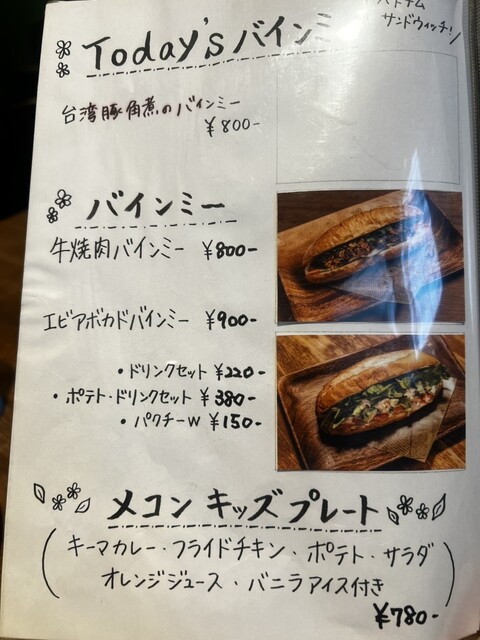 Today'sバインミー
ベトナム
サンドウィッチ!
台湾豚角煮のバインミー
¥800-
バインミー
牛焼肉バインミー ¥800-
エビアボカドバインミー ¥900-
・ドリンクセット ¥220-
・ポテト・ドリンクセット ¥380-
・パクチーW ¥150-
メコン キッズプレート
(キーマカレー・フライドチキン・ポテト・サラダ
オレンジジュース・バニラアイス付き)
¥780-